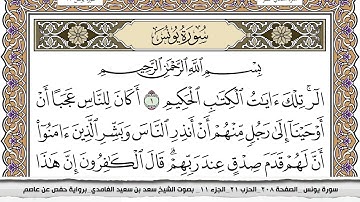 سُورَةُ يُونُسَ
بِسْمِ ٱللَّهِ ٱلرَّحْمَٰنِ ٱلرَّحِيمِ
الٓر تِلْكَ ءَايَٰتُ ٱلْكِتَٰبِ ٱلْحَكِيمِ ١ أَكَانَ لِلنَّاسِ عَجَبًا أَنْ
أَوْحَيْنَآ إِلَىٰ رَجُلٍ مِّنْهُمْ أَنْ أَنذِرِ ٱلنَّاسَ وَبَشِّرِ ٱلَّذِينَ ءَامَنُوٓا۟
أَنَّ لَهُمْ قَدَمَ صِدْقٍ عِندَ رَبِّهِمْ قَالَ ٱلْكَٰفِرُونَ إِنَّ هَٰذَا
سورة يونس _الصفحة ٢٠٨_الحزب ٢١_الجزء ١١_ بصوت الشيخ سعد بن سعيد الغامدي_برواية حفص عن عاصم